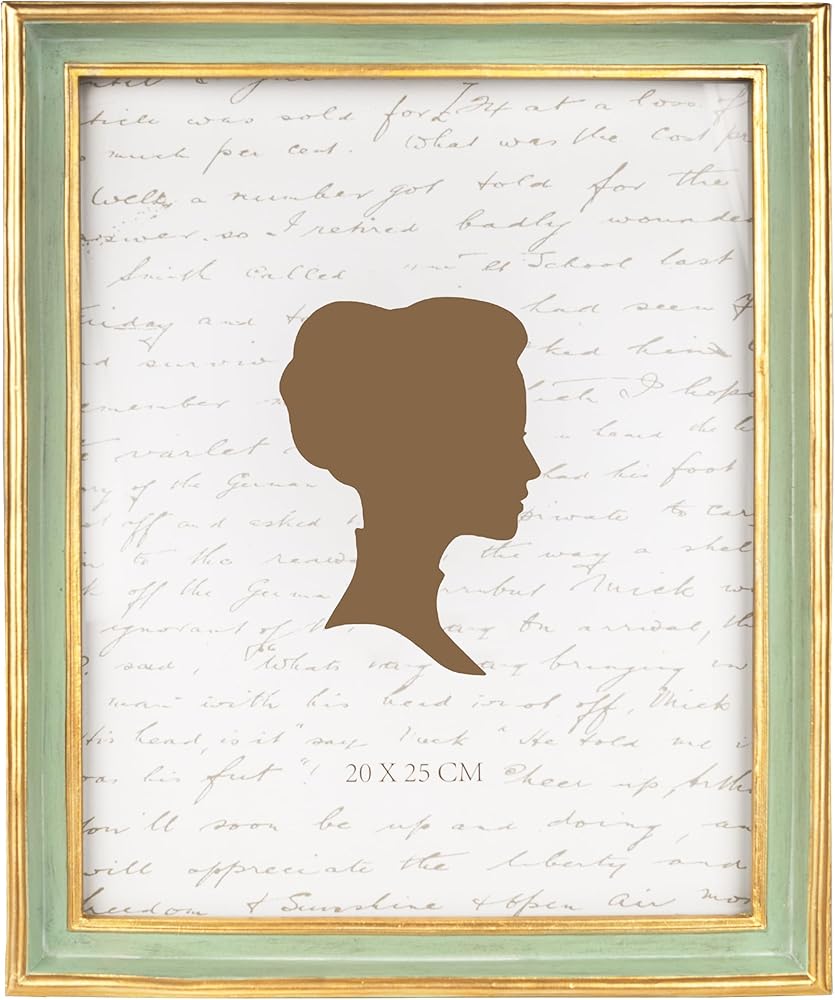 was sold for £74 at a loss of
much per cent. What was the cost pr
Well a number got told for the
answer. so I retired badly wounde
Smith called "me" at School last
Friday and to had seen
d surviv ked him
emember which I hope
e varlet heard the
ry of the German had his foot
t off and asked private to car
in to the the way a shel
k off the Germa Mick w
ignorant of On arrival, the
said, "Whats bringing
man" with his head is not off, Mick
His head, is it" say Mick "He told me i
was his feet"! 20 X 25 CM Cheer up, Arth
You'll soon be up and doing, an
will appreciate the liberty and
eedom & Sunshine & open Air mos